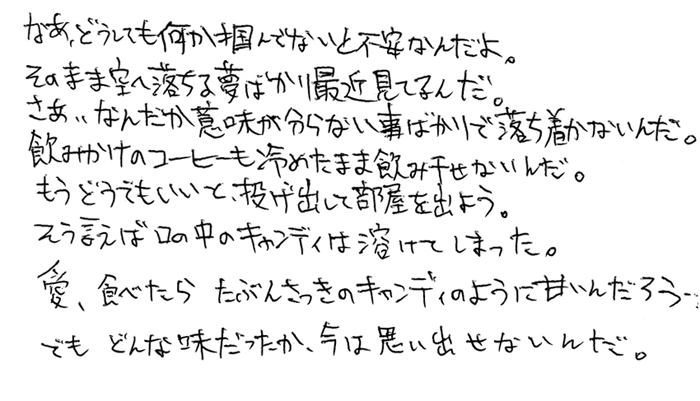 なあ、どうしても何か掴んでないと不安なんだよ。
そのまま空へ落ちる夢ばかり最近見てるんだ。
さあ、、なんだか意味が分らない事ばかりで落ち着かないんだ。
飲みかけのコーヒーも冷めたまま飲み干せないんだ。
もうどうでもいいと、投げ出して部屋を出よう。
そう言えば口の中のキャンディは溶けてしまった。
愛、食べたら たぶんさっきのキャンディのように甘いんだろう…
でも どんな味だったか、今は思い出せないんだ。